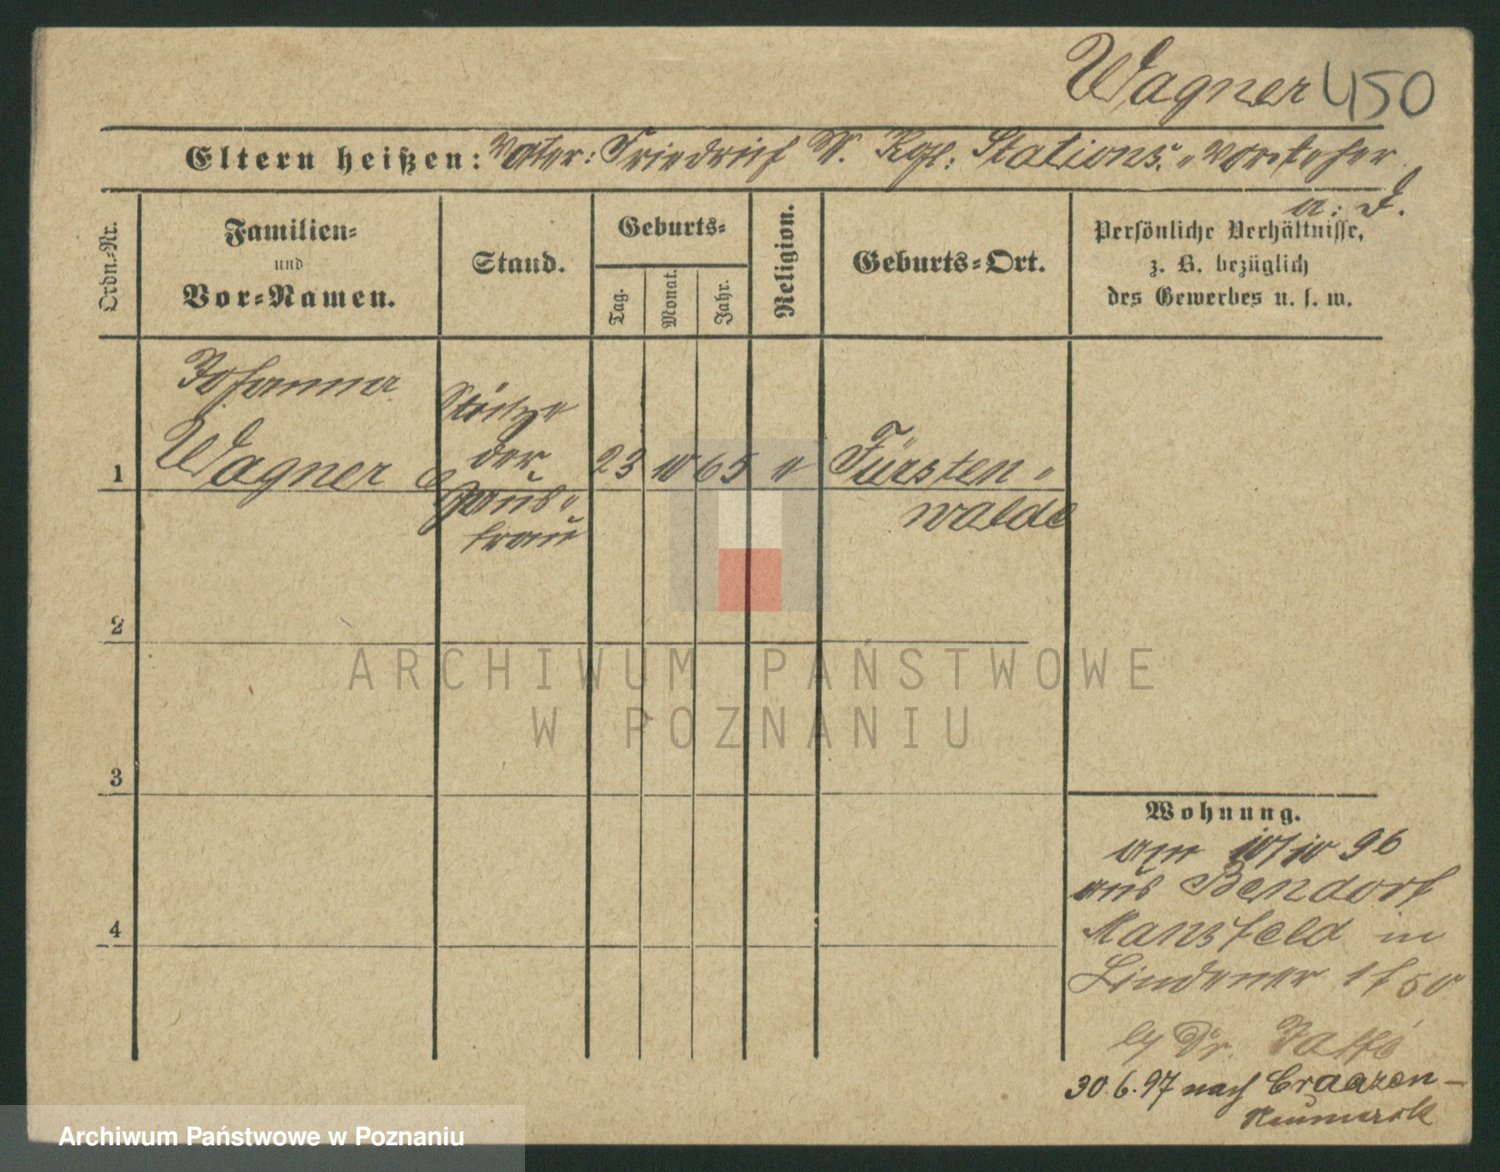 Wagner 450
Eltern heißen: Vater: Friedrich W. Kgl. Stations-Vorsteher
a. D.
Ordn.-Nr.
Familien-
und
Vor-Namen.
Stand.
Geburts-
Tag.
Monat.
Jahr.
Religion.
Geburts-Ort.
Persönliche Verhältnisse,
z. B. bezüglich
des Gewerbes u. s. w.
Johanna
Wagner
Stütze
der
Haus-
frau
1
23 10 65 e
Fürsten-
walde
2
3
4
ARCHIWUM PAŃSTWOWE
W POZNANIU
Wohnung.
am 10/10 96
aus Bendorf
Mansfeld in
30.6.97 nach
Neumark
Archiwum Państwowe w Poznaniu